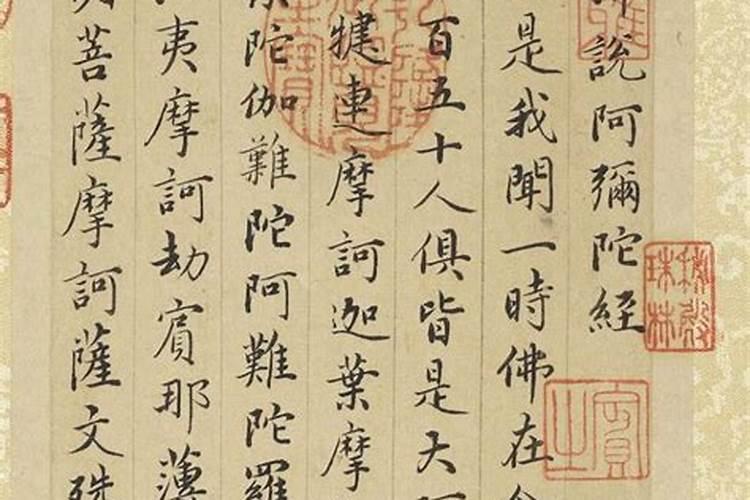 秘殿
珠林
說阿彌陀經
是我聞一時佛在
百五十人俱皆是大
犍連摩訶迦葉摩
陀伽難陀阿難陀羅
夷摩訶劫賓那薄
菩薩摩訶薩文殊